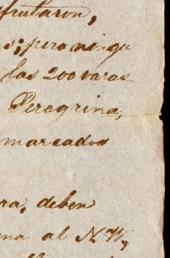 frutaron,
s; pero ningu
las 200 varas
Peregrina,
marcados
ra, deben
na al N.W,